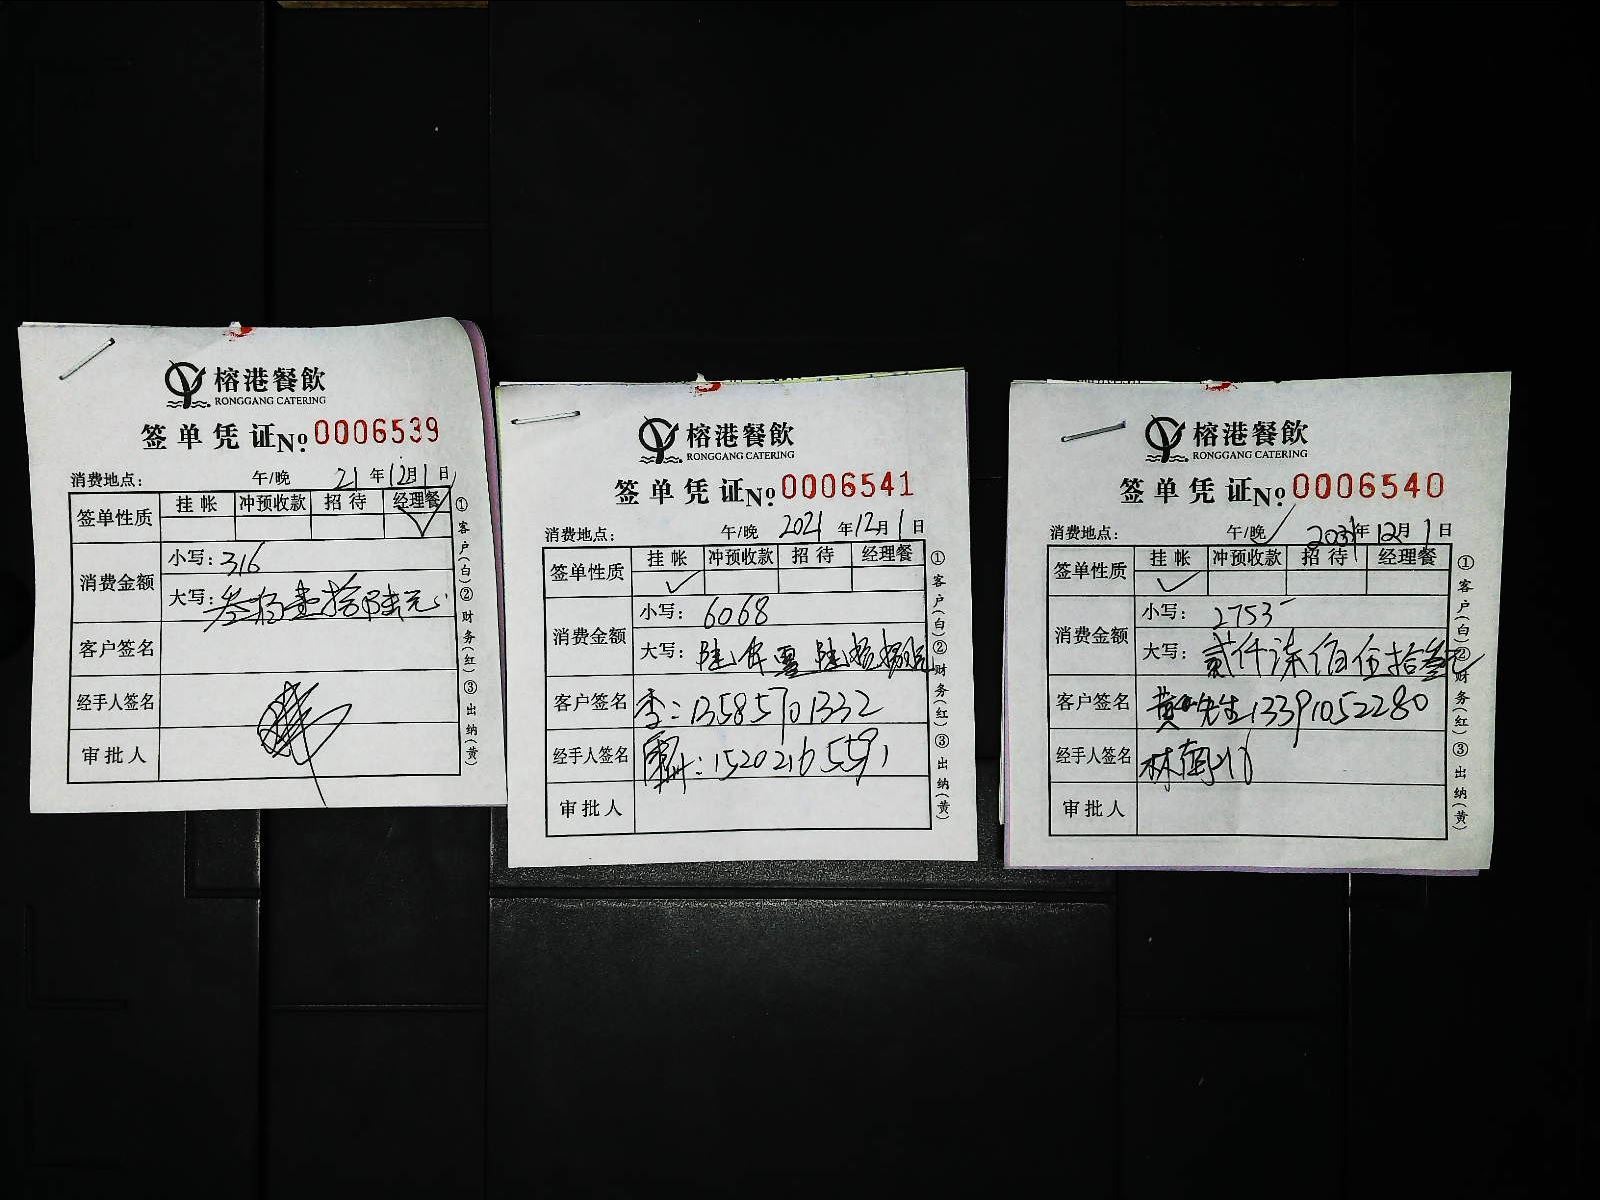 榕港餐飲
RONGGANG CATERING
签单凭证 No. 0006539
消费地点： 午/晚 21 年 12 月 1 日
签单性质 挂帐 冲预收款 招待 经理餐
✓
消费金额 小写：316
大写：叁佰壹拾陆元
客户签名
经手人签名
审批人
①客户(白)②财务(红)③出纳(黄)
榕港餐飲
RONGGANG CATERING
签单凭证 No. 0006541
消费地点： 午/晚 2021 年 12 月 1 日
签单性质 挂帐 冲预收款 招待 经理餐
✓
消费金额 小写：6068
大写：陆仟零陆拾捌元
客户签名 李：13585701332
经手人签名 ：15202165591
审批人
①客户(白)②财务(红)③出纳(黄)
榕港餐飲
RONGGANG CATERING
签单凭证 No. 0006540
消费地点： 午/晚 年 12 月 1 日
签单性质 挂帐 冲预收款 招待 经理餐
✓
消费金额 小写：2753
大写：贰仟柒佰伍拾叁元
客户签名 黄先生13391052280
经手人签名 林
审批人
①客户(白)②财务(红)③出纳(黄)